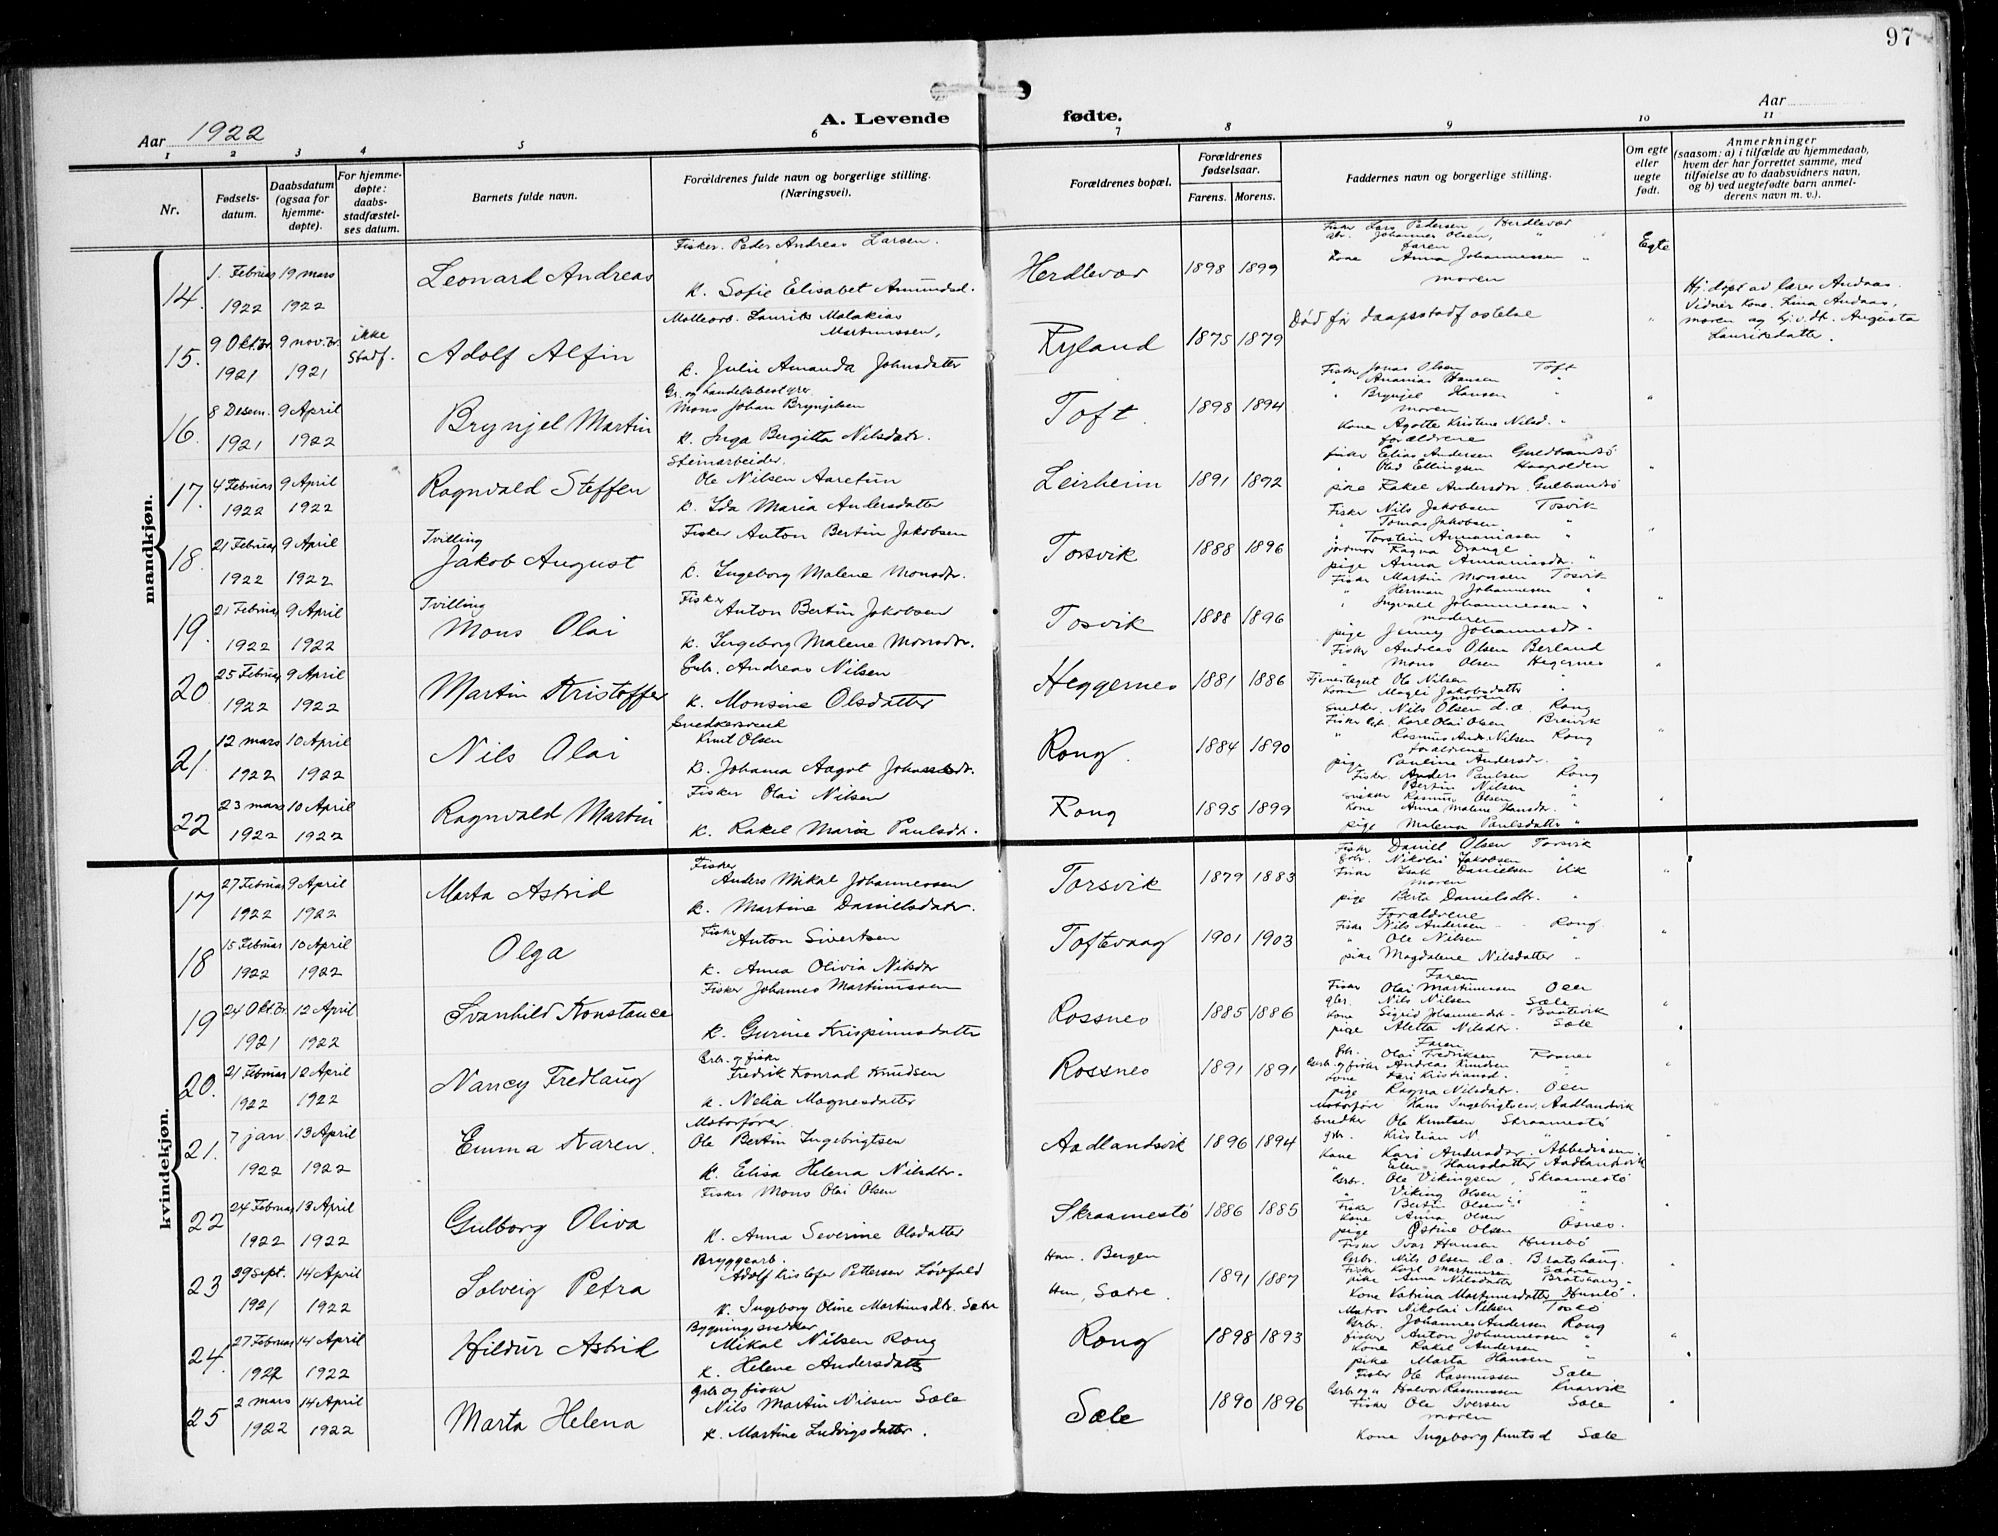 97
Aar 1922
A. Levende fødte.
Aar
1 2 3 4 5 6 7 8 9 10 11
Nr.
Fødsels-
datum.
Daabsdatum
(ogsaa for
hjemme-
døpte).
For hjemme-
døpte:
daabs-
stadfæstel-
ses datum.
Barnets fulde navn.
Forældrenes fulde navn og borgerlige stilling.
(Næringsvei).
Forældrenes bopæl.
Forældrenes
fødselsaar.
Farens. Morens.
Faddernes navn og borgerlige stilling.
Om egte
eller
uegte
født.
Anmerkninger
(saasom: a) i tilfælde av hjemmedaab,
hvem der har forrettet samme, med
tilføielse av to daabsvidners navn,
og b) ved uegtefødte barn anmel-
derens navn m. v.).
mandkjøn.
14. 1. Februar 1922 19 mars 1922 Leonard Andreas
Fisker. Peder Andreas Larsen.
k. Sofie Elisabet Amundsd.
Herdlevær 1898 1899
Fisker Lars Pedersen, Herdlevær
Johannes Olsen, "
faren
Kone Anna Johannessen "
moren
Egte
15. 9 Oktbr 1921 9 novbr. 1921 ikke Stadf. Adolf Alfin
Laurits Malakias
Martinussen,
k. Julie Amanda Johnsdatter
Ryland 1875 1879
Død før daapsstadfæstelse
"
Hj. døpt av lærer Andaas.
Vidner kone Lina Andaas,
moren og Augusta
Lauritsdatter.
16. 8 Desem. 1921 9 April 1922 Brynjel Martin
Gr. og handelsbestyrer
Mons Johan Brynjelsen
k. Inga Bergitta Nilsdatr.
Toft. 1898 1894
Fisker Jonas Olsen Toft
" Ananias Hansen "
" Brynjel Hansen "
moren
Kone Agotte Kristine Nilsd. "
"
17. 4 Februar 1922 9 April 1922 Ragnvald Steffen
Steinarbeider.
Ole Nilsen Aaretun
k. Ida Maria Andersdatter
Leirheim 1891 1892
forældrene
fisker Elias Andersen Guldbrandsø
" Olad Ellingsen
pike Rakel Andersdtr. Gulbrandsø
"
18. 21 Februar 1922 9 April 1922 Tvilling
Jakob August
Fisker Anton Bertin Jakobsen
k. Ingeborg Malene Monsdtr.
Torsvik 1888 1896
Fisker Nils Jakobsen Tosvik
" Tomas Jakobsen "
" Torstein Annaniasen "
jordmor Ragna Drange
pige Anna Annaniasdtr. "
"
19. 21 Februar 1922 9 April 1922 Tvilling
Mons Olai
Fisker
Anton Bertin Jakobsen
k. Ingeborg Malene Monsdtr.
Tosvik 1888 1896
Fisker Martin Monsen Tosvik
" Herman Johannesen "
" Ingvald Johannessen "
moderen
pige Jenny Johannesdtr. "
"
20 25 Februar 1922 9 April 1922 Martin Kristoffer
Gbr. Andreas Nilsen
k. Monsine Olsdatter
Heggernes 1881 1886
Fisker Andreas Olsen Berland
" Mons Olsen Hegernes
Tjenestegut Ole Nilsen "
Kone Magli Jakobsdatter "
moren
"
21. 12 mars 1922 10 April 1922 Nils Olai
Snedkersvend
Knut Olsen
k. Johanna Aagot Johansdtr.
Rong. 1884 1890
Snedker. Nils Olsen d.æ. Rong
Fisker Karl Olai Olsen Brenvik
" Rasmus Andr. Nilsen Rong
forældrene
pige Pauline Andersdtr. "
"
22 23 mars 1922 10 April 1922 Ragnvald Martin
Fisker Olai Nilsen
k. Rakel Maria Paulsdtr.
Rong 1895 1899
Fisker Anders Paulsen Rong
" Bertin Nilsen "
Snikker Rasmus Olsen "
Kone Anna Malene Hansdtr. "
pige Malena Paulsdatter "
"
kvindekjøn.
17 27 Februar 1922 9 April 1922 Marta Astrid
Fisker
Anders Mikal Johannessen
k. Martine Danielsdatr.
Torsvik 1879 1883
Fisker Daniel Olsen Torsvik
gbr. Nikolai Jakobsen "
Fisker Isak Danielsen Ulk
moren
pige Berta Danielsdtr. "
"
18 15 Februar 1922 10 April 1922 Olga
Fisker
Anton Sivertsen
k. Anna Olivia Nilsdtr
Toftevaag 1901 1903
Forældrene
Fisker Nils Andersen Rong.
" Ole Nilsen "
pike Magdalene Nilsdatter "
"
19 24 Oktbr. 1921 12 April 1922 Svanhild Konstance
Fisker Johannes Martinussen
k. Gurine Krispinusdatter
Rossnes 1885 1886
Faren
Fisker Olai Martinussen Oen
gbr. Nils Nilsen Sæle
Kone Sigrid Johannesdtr.
pige Aletta Nilsdtr. Sæle
"
20. 21 Februar 1922 12 April 1922 Nancy Fredlaug
Grb. og fisker
Fredrik Konrad Knudsen
k. Nelia Magnesdatter
Rossnes 1891 1891
Faren
Gbr. Olai Fredriksen Rosnes
Gbr. og fisker Andreas Knudsen "
Kone Kari Kristiansd. "
pige Ragna Nilsdatr. Oen
"
21. 7 jan. 1922 13 April 1922 Emma Karen.
Motorfører.
Ole Bertin Ingebrigtsen
k. Elisa Helena Nilsdtr.
Aadlandsvik 1896 1894
Motorfører Hans Ingebrigtsen, Aadlandsvik
Snedker Ole Knutsen Skraamestø
gbr. Kristian N. "
Kone Kari Andersdtr.
" Elen Hansdatter Aadlandsvik
"
22 24 Februar 1922 13 April 1922 Gulborg Oliva
Fisker Mons Olai Olsen
k. Anna Severine Olsdatter
Skraamestø 1886 1885
Gbr. Ole Vikingsen, Skraamestø
" Viking Olsen "
Fisker Bertin Olsen "
Kone Anna Olsen "
pige Østine Olsen Øsnes.
"
23 29 Sept. 1921 14 April 1922 Solveig Petra
Bryggearb.
Adolf Kristofer Pettersen Løvfald
k. Ingeborg Oline Martinusdtr. Sætre
Han. Bergen
Hun, Sætre. 1891 1887
Fisker Ivar Hansen Husebø
Gbr. Nils Olsen d.æ. Bratshaug.
Fisker Karl Martinusen Sætre
pike Anna Nilsdatter Bratshaug.
Kone Katrina Martinusdatter Husebø.
"
24. 27 Februar 1922 14 April 1922 Hildur Astrid
Bygningssnedker
Mikal Nilsen Rong
k. Helene Andersdatter
Rong 1898 1893
Matros Nikolai Nilsen
Gbr. Johannes Andersen Rong
fisker Anton Johannessen "
Kone Rakel Andersen "
pike Marta Hansen "
"
25 2 mars 1922 14 April 1922 Marta Helena
grbr og fisker
Nils Martin Nilsen Sæle
k. Martine Ludvigsdatter.
Sæle 1890 1896
Fisker Ole Rasmussen Sæle
Gbr og " Halvor Rasmussen Knarvik
Fisker Ole Iversen Sæle
moren
Kone Ingeborg Knutsd Sæle
"